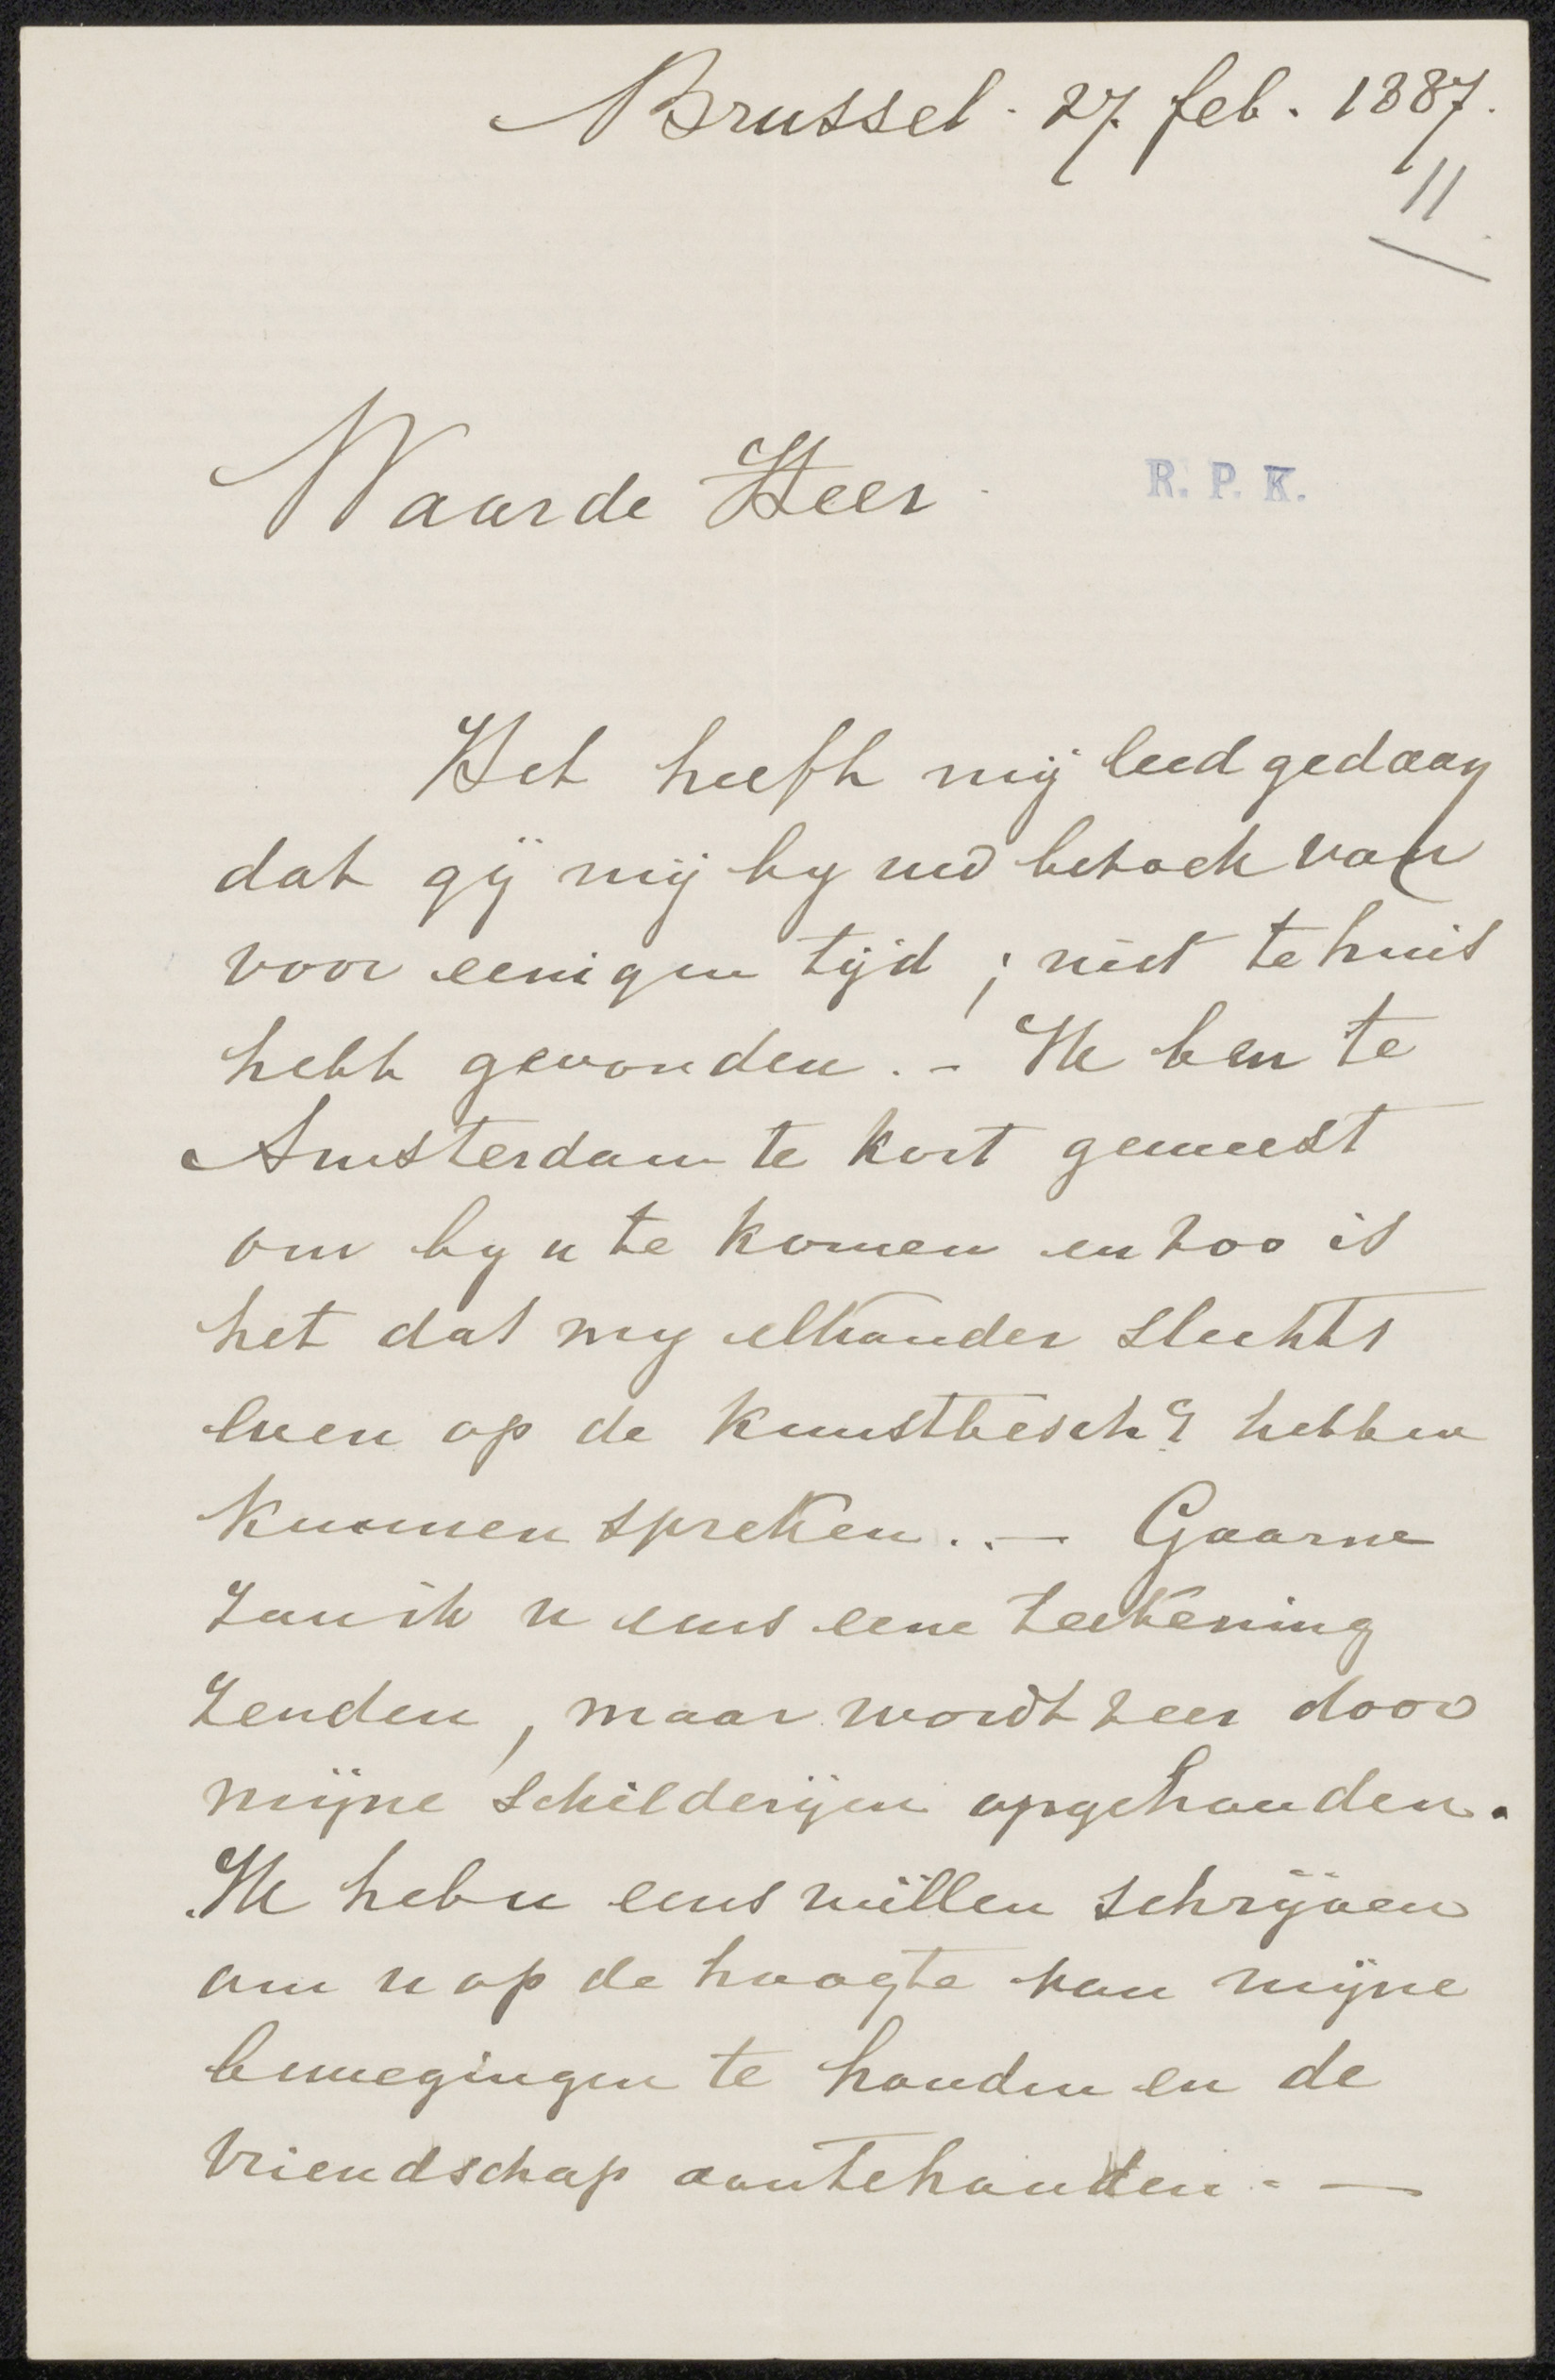 Brussel. 27 feb. 1887.
11
Waarde Heer
R. P. K.
Het heeft mij leed gedaan
dat gij mij by uw bezoek van
voor eenigen tijd ; niet te huis
hebt gevonden. - Ik ben te
Amsterdam te kort geweest
om by u te komen en zoo is
het dat wy elkander slechts
even op de kunstbesch? hebben
kunnen spreken. . — Gaarne
zou ik u eens eene teekening
zenden, maar wordt zeer door
mijne schilderijen opgehouden.
Ik heb u eens willen schrijven
om u op de hoogte van mijne
bewegingen te houden en de
vriendschap aantehouden. - —